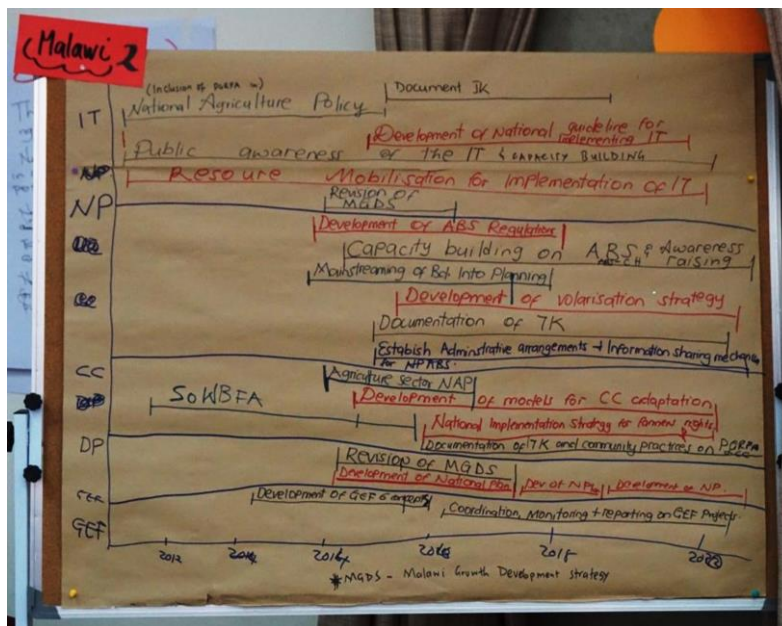 Malawi 2
(Inclusion of PGRFA in)
Document IK
IT
National Agriculture Policy
Development of National guideline for
implementing IT
Public awareness of the IT & CAPACITY BUILDING
NP
Resoure Mobilisation for Implementation of IT
Revision of
MGDS
NP
Development of ABS Regulations
Capacity building on ABS & Awareness
raising
Mainstreaming of Bd Into Planning
Development of valorisation strategy
Documentation of TK
Estabish Adminstrative arrangements + Information sharing mechanism
for NP ABS.
CC
Agriculture sector NAP
Development of models for CC adaptation
SoWBFA
National Implementation Strategy for farmers rights
DP
Documentation of TK and community practices on PGRFA
Revision of MGDS
Development of National Plan
Dev of NPs
Development of NP.
Development of GEF 6 concepts
Coordination, Monitoring + reporting on GEF Projects.
GEF
*MGDS - Malawi Growth Development strategy